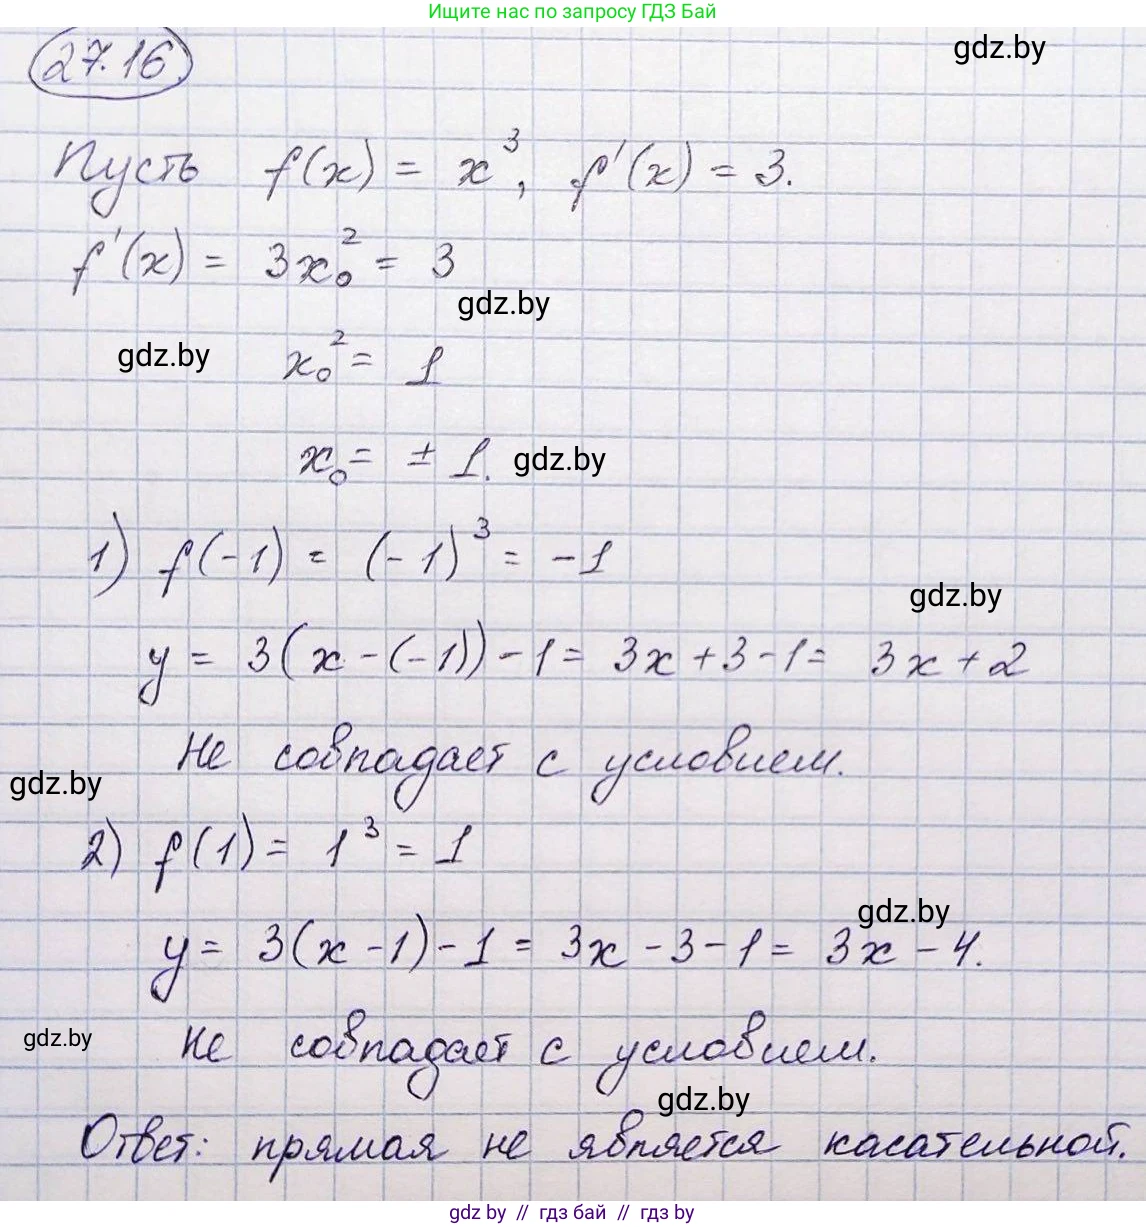 Ищите нас по запросу ГДЗ Бай
27.16
gdz.by
Пусть f(x) = x³, f'(x) = 3.
f'(x) = 3x₀² = 3
gdz.by
gdz.by
x₀² = 1
x₀ = ± 1.
gdz.by
1) f(-1) = (-1)³ = -1
gdz.by
y = 3(x - (-1)) - 1 = 3x + 3 - 1 = 3x + 2
Не совпадает с условием.
gdz.by
2) f(1) = 1³ = 1
gdz.by
y = 3(x - 1) - 1 = 3x - 3 - 1 = 3x - 4.
gdz.by
Не совпадает с условием.
gdz.by
Ответ: прямая не является касательной.
gdz.by // гдз бай // гдз by